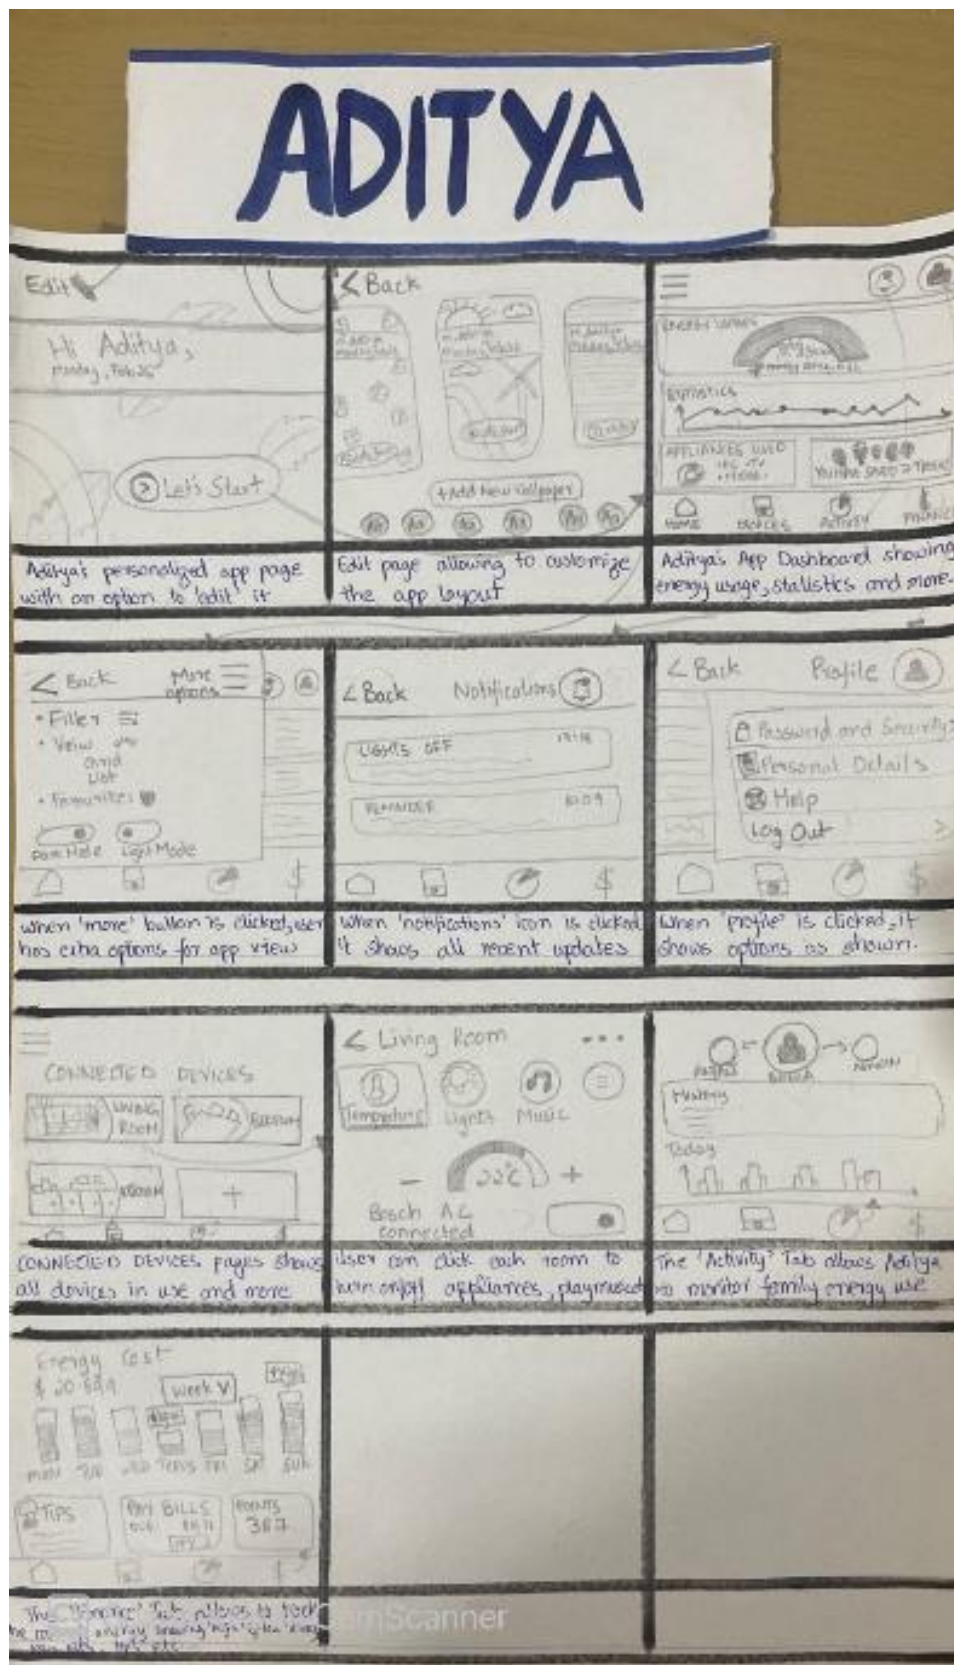 ADITYA
Edit
Hi Aditya,
Monday, Feb 26
Let's Start
Aditya's personalized app page
with an option to 'edit' it
< Back
+ Add New Wallpaper
Aa Aa Aa Aa Aa Aa
Edit page allowing to customize
the app layout
ENERGY USAGE
Statistics
APPLIANCES USED
YOU HAVE SAVED 2 TREES!
HOME DEVICES ACTIVITY FINANCE
Aditya's App Dashboard showing
energy usage, statistics and more.
< Back More
options
• Filter
• View
Grid
List
• Favourites
Dark Mode Light Mode
$
When 'more' button is clicked, user
has extra options for app view
< Back Notifications
LIGHTS OFF
REMINDER
$
When 'notifications' icon is clicked
it shows all recent updates
< Back Profile
Password and Security >
Personal Details
Help
Log Out >
$
When 'profile' is clicked, it
shows options as shown.
CONNECTED DEVICES
LIVING
ROOM
BEDROOM
+
$
CONNECTED DEVICES pages shows
all devices in use and more
< Living Room
Temperature Lights Music
- 22°C +
Bosch AC
connected
User can click each room to
turn on/off appliances, play music
History
Today
$
The 'Activity' Tab allows Aditya
to monitor family energy use
Energy Cost
Week V
MON TUE WED THURS FRI SAT SUN
TIPS
PAY BILLS
POINTS
367
The 'Finance' Tab allows to track
CamScanner